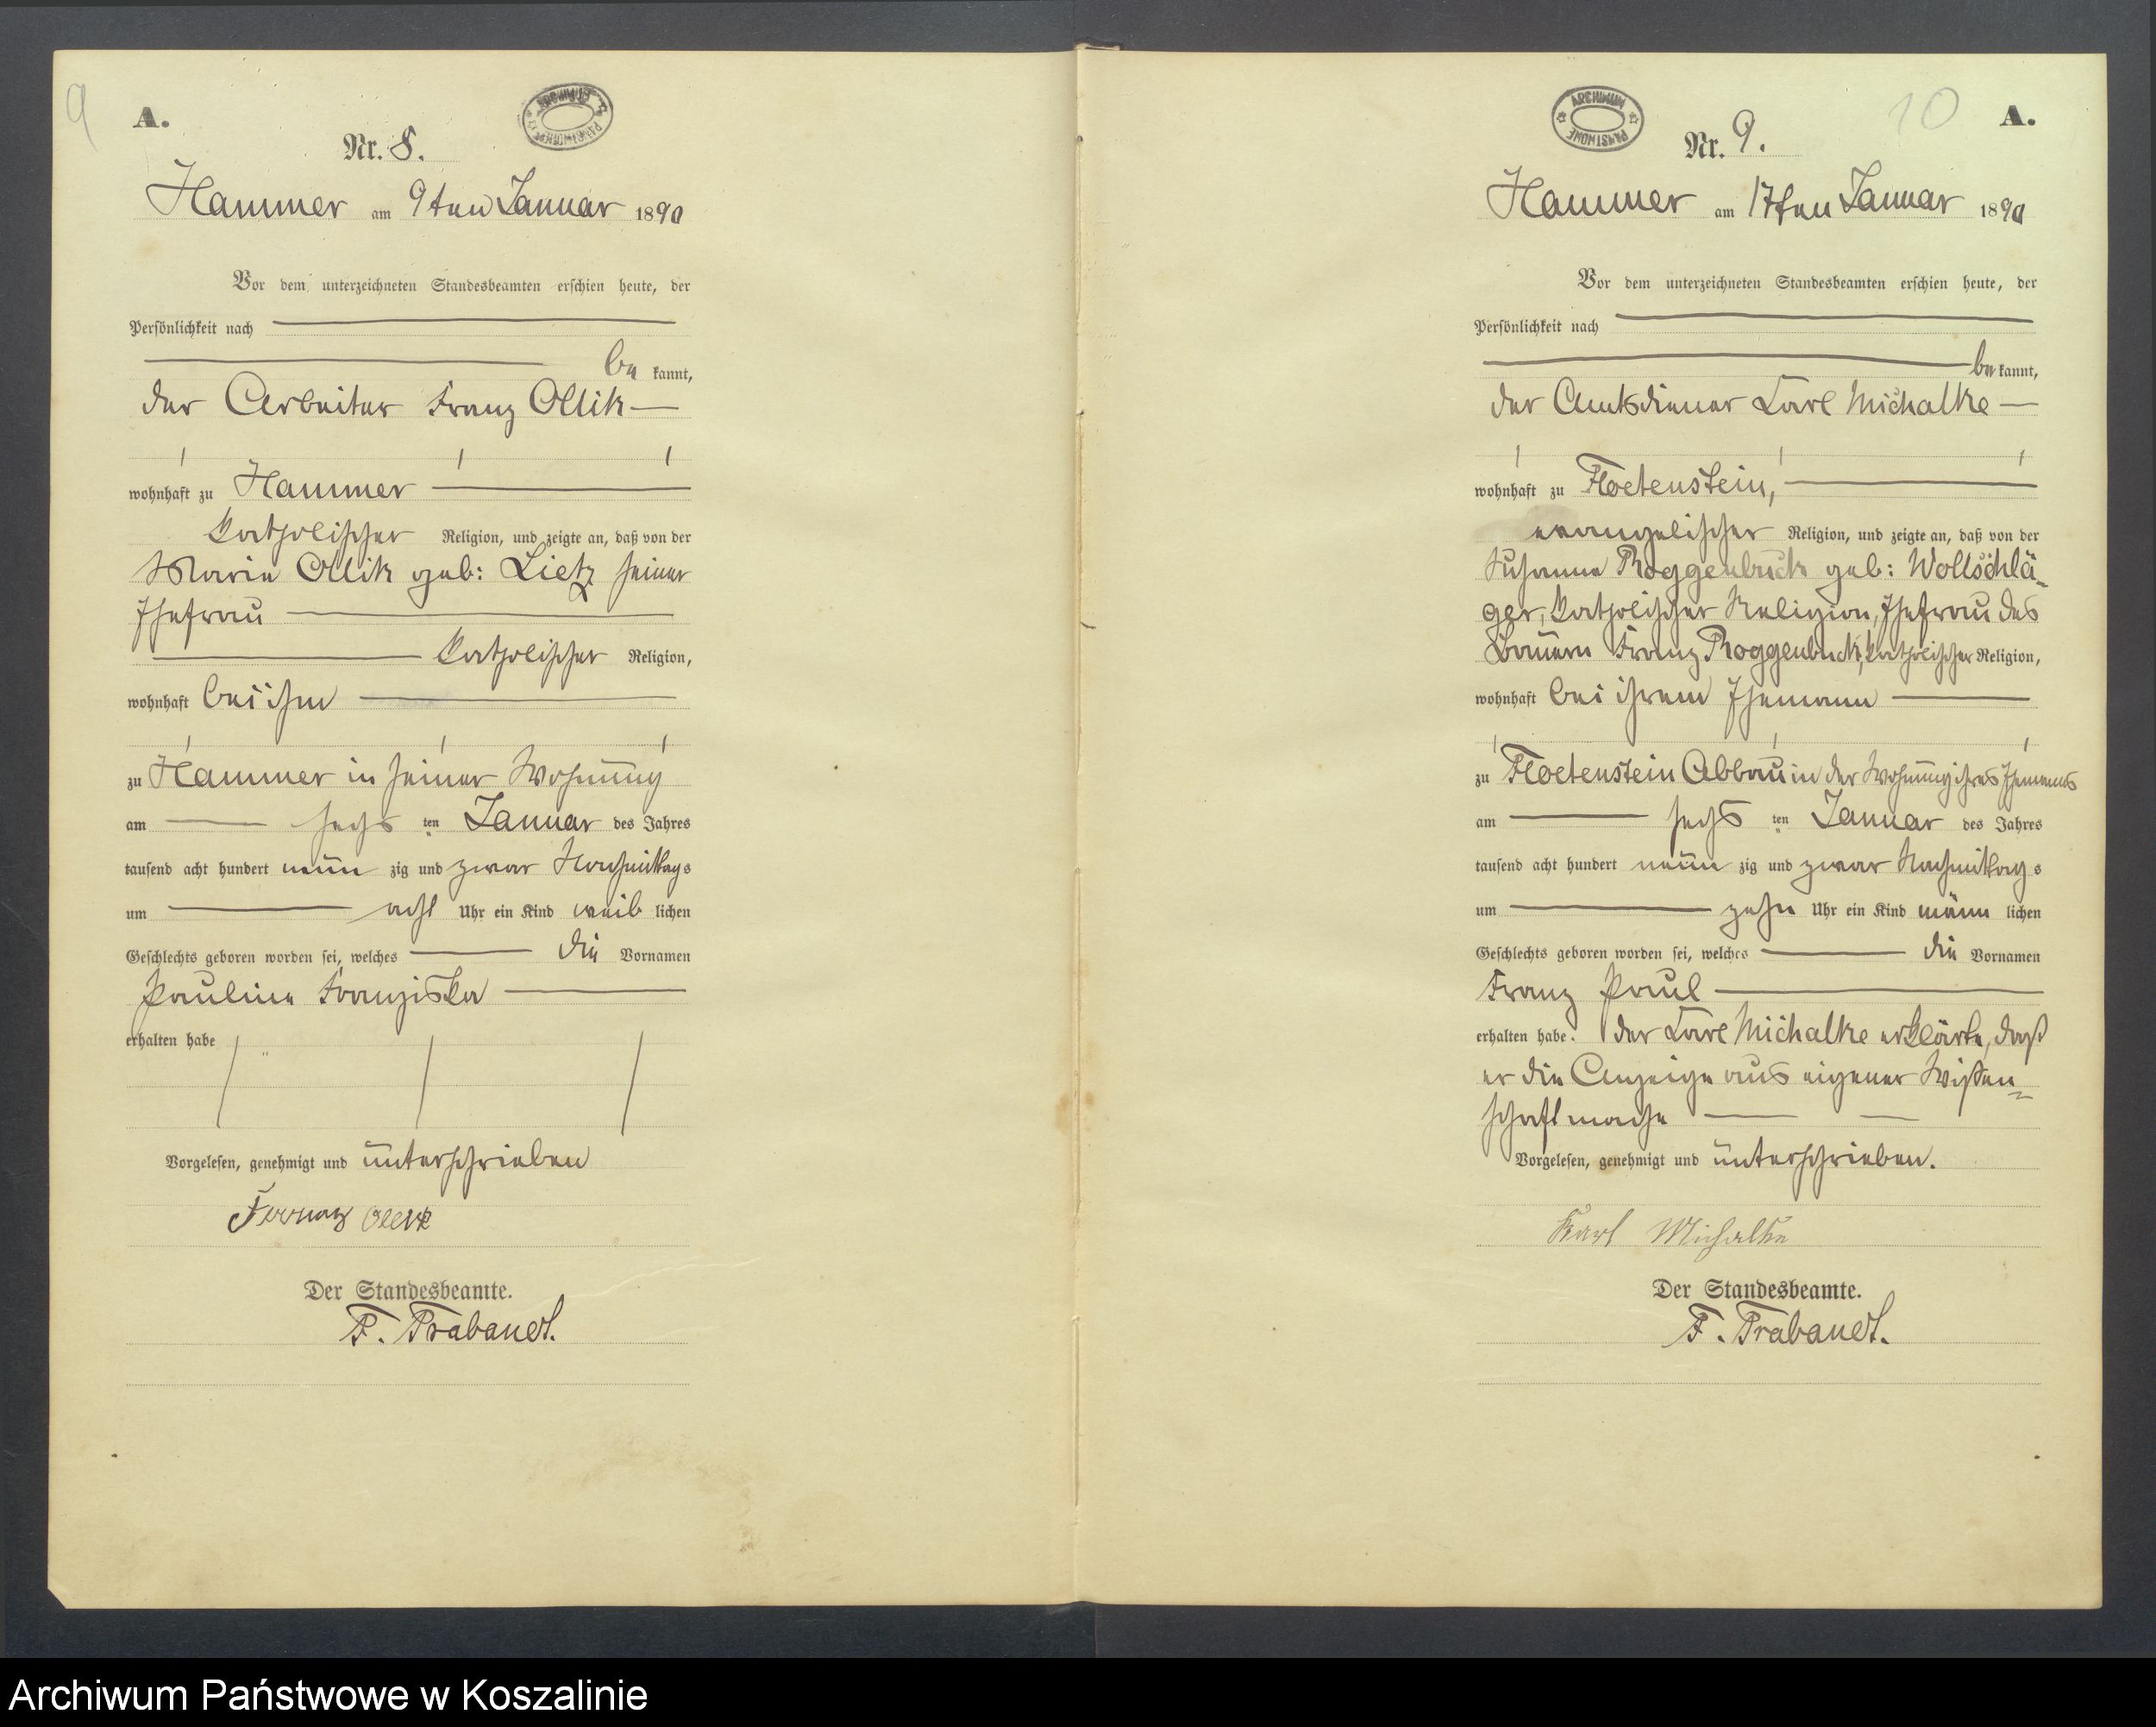 9
A.
ARCHIWUM PAŃSTWOWE
Nr. 8.
Hammer am 9ten Januar 1890
Vor dem unterzeichneten Standesbeamten erschien heute, der
Persönlichkeit nach
be kannt,
der Arbeiter Franz Ollik
wohnhaft zu Hammer
katholischer Religion, und zeigte an, daß von der
Marie Ollik geb: Lietz seiner
Ehefrau
katholischer Religion,
wohnhaft bei ihm
zu Hammer in seiner Wohnung
am sechs ten Januar des Jahres
tausend acht hundert neun zig und zwar Nachmittags
um acht Uhr ein Kind weib lichen
Geschlechts geboren worden sei, welches die Vornamen
Pauline Franziska
erhalten habe
Vorgelesen, genehmigt und unterschrieben
Franz Ollik
Der Standesbeamte.
F. Trabandt.
10
A.
ARCHIWUM PAŃSTWOWE
Nr. 9.
Hammer am 17ten Januar 1890
Vor dem unterzeichneten Standesbeamten erschien heute, der
Persönlichkeit nach
be kannt,
der Amtsdiener Karl Michalke
wohnhaft zu Floetenstein,
evangelischer Religion, und zeigte an, daß von der
Susanna Roggenbuck geb: Wollschlä-
ger, katholischer Religion, Ehefrau des
Bauern Franz Roggenbuck, katholischer Religion,
wohnhaft bei ihrem Ehemann
zu Floetenstein Abbau in der Wohnung ihres Ehemanns
am sechs ten Januar des Jahres
tausend acht hundert neun zig und zwar Nachmittags
um zehn Uhr ein Kind männ lichen
Geschlechts geboren worden sei, welches die Vornamen
Franz Paul
erhalten habe. Der Karl Michalke erklärte, daß
er die Anzeige aus eigener Wissen-
schaft mache
Vorgelesen, genehmigt und unterschrieben.
Karl Michalke
Der Standesbeamte.
F. Trabandt.
Archiwum Państwowe w Koszalinie